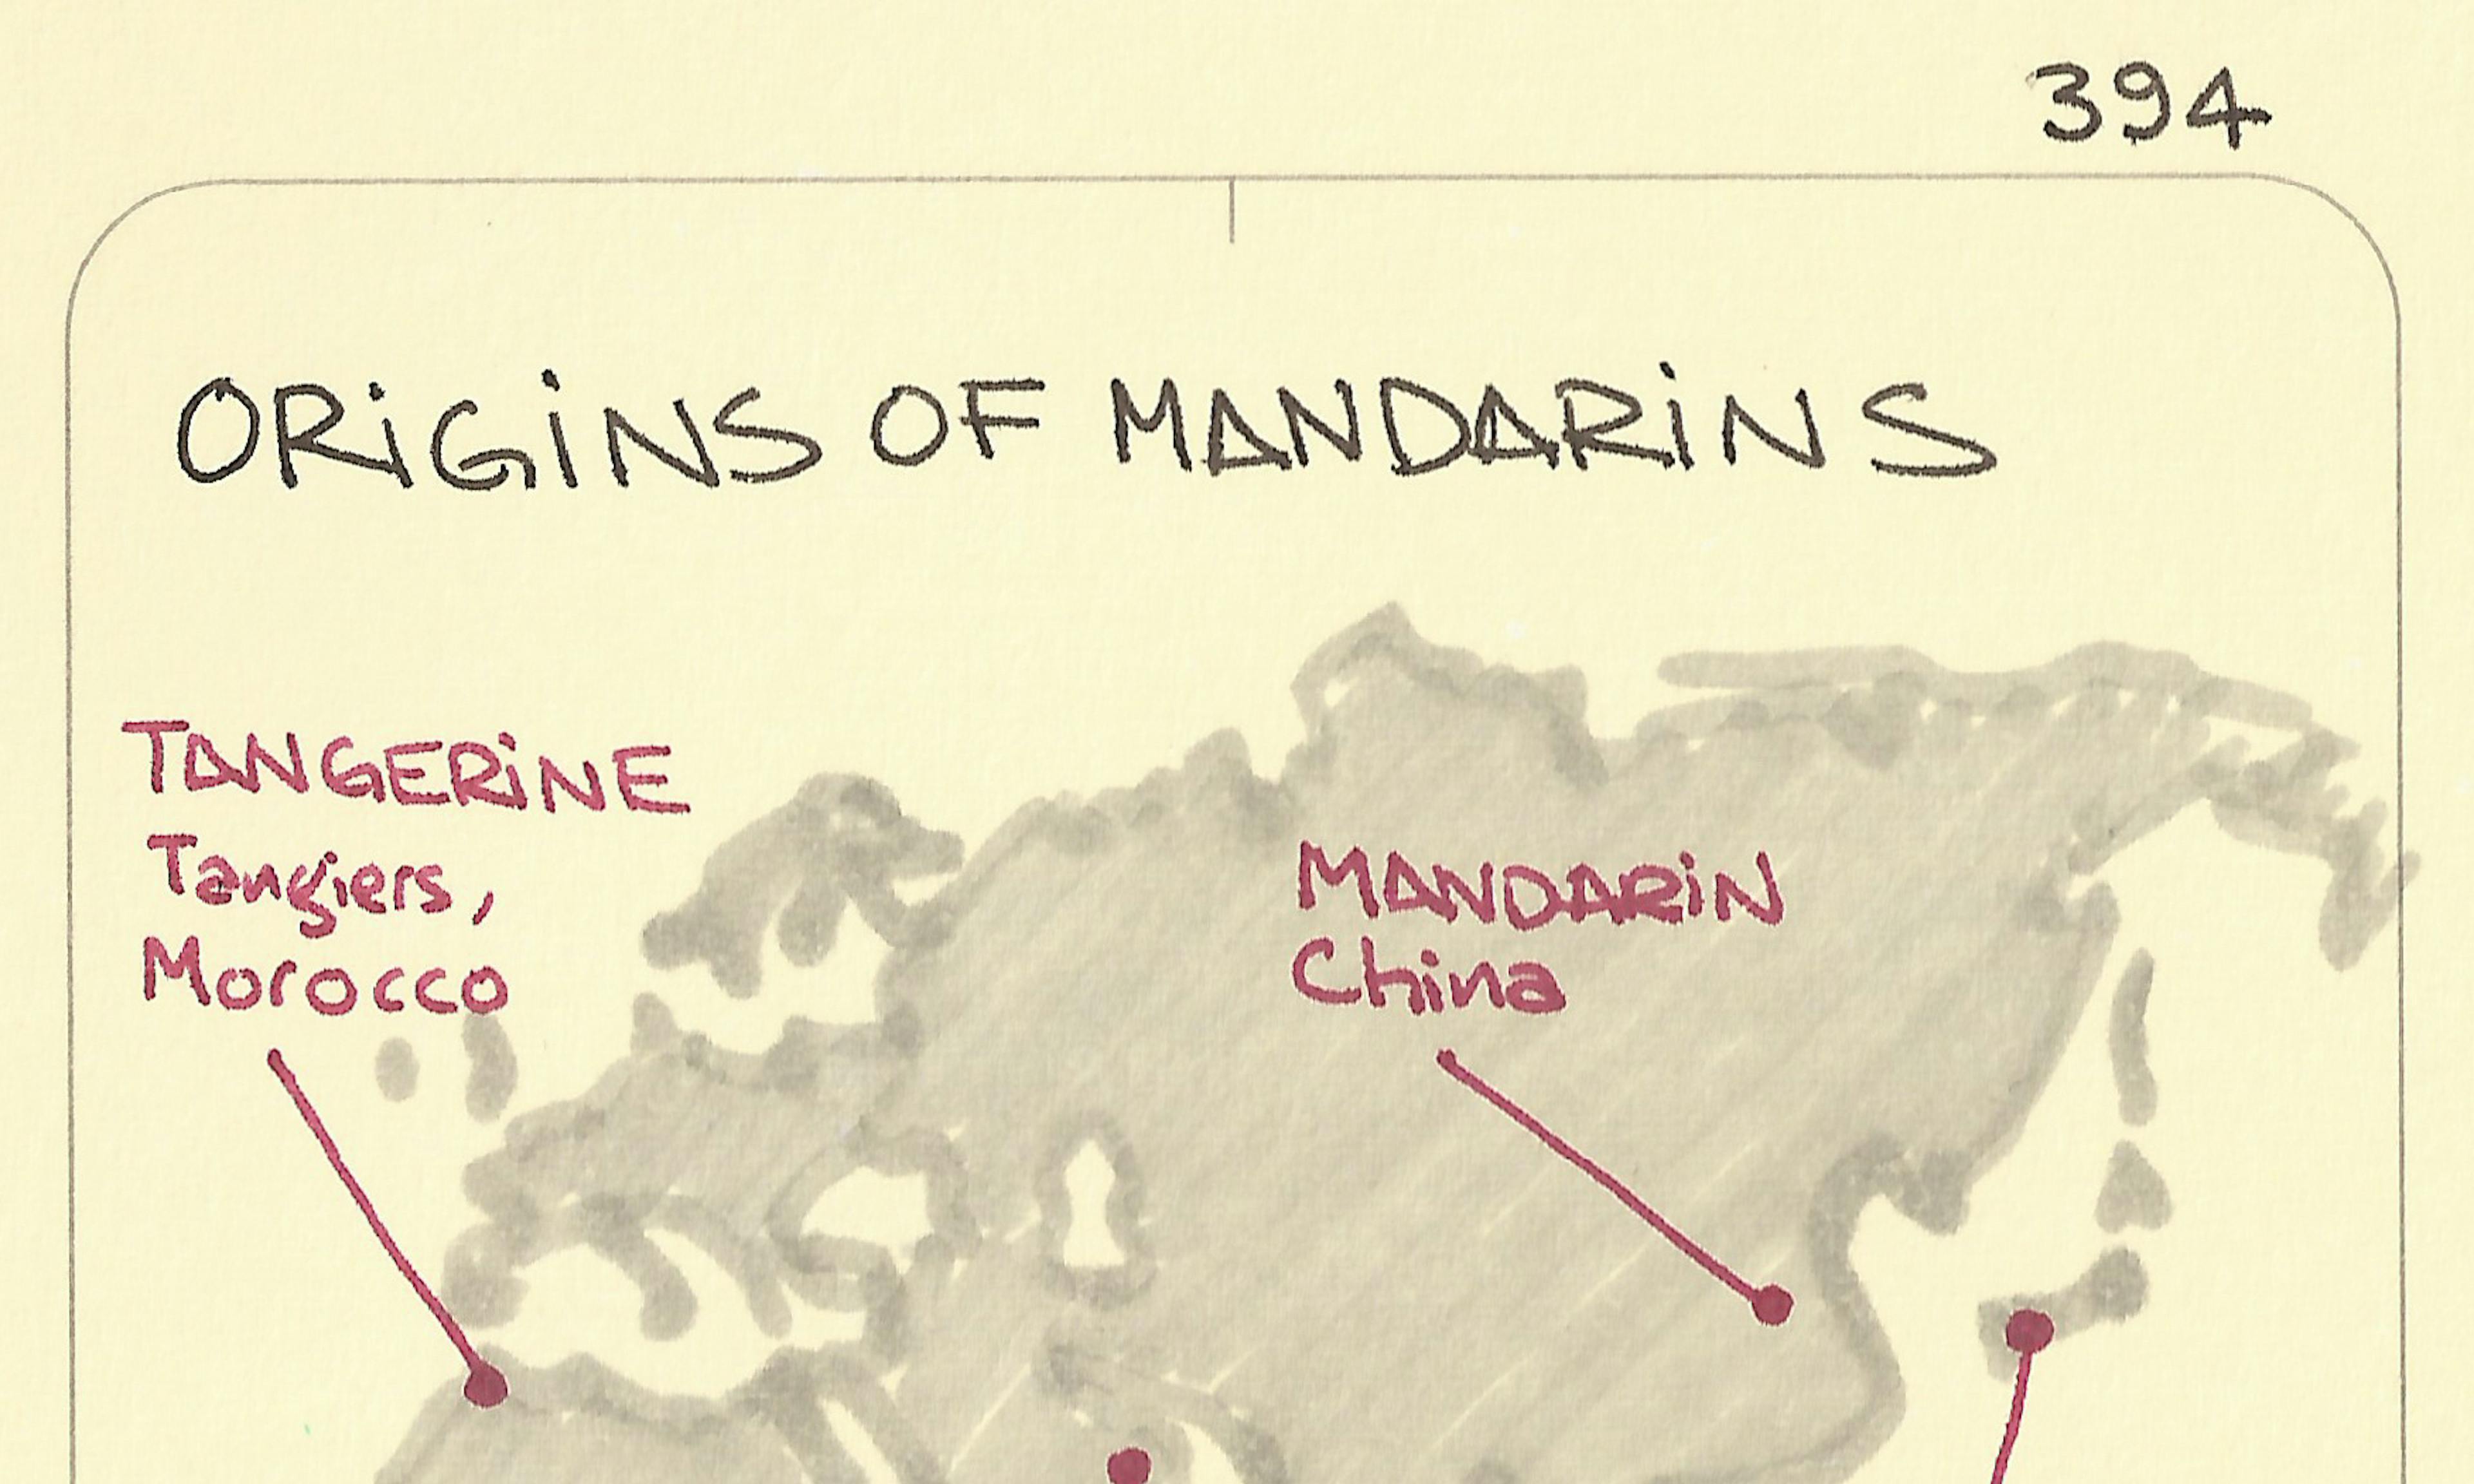 394
ORiGiNS OF MANDARiNS
TANGERiNE
Tangiers,
Morocco
MANDARiN
China